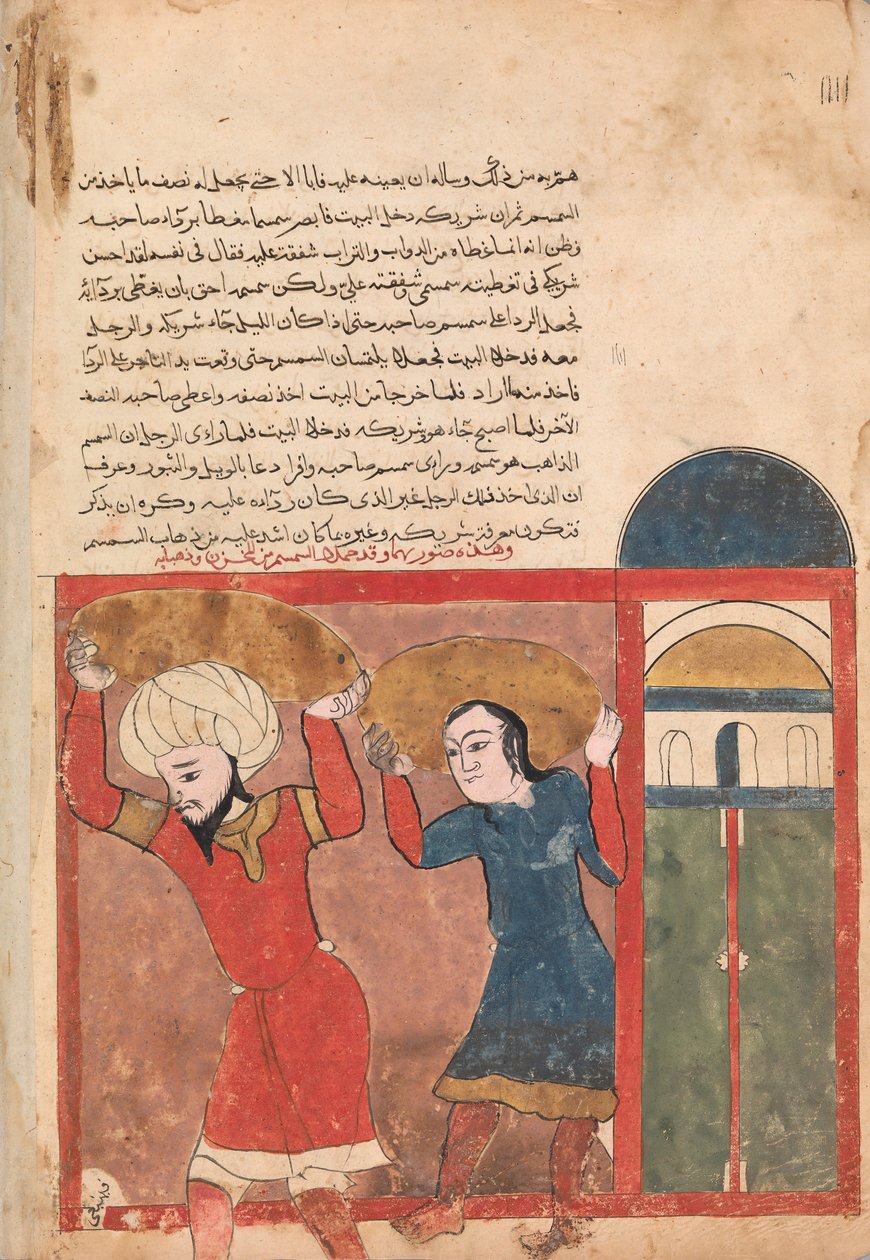 همّ به من ذلك وساله ان يعينه عليه فابا الا حتى يجعل له نصف ما ياخذ من
السمسم ثم ان شريكه دخل البيت فابصر سمسما مغطا بردآء صاحبه
فظن انه انما غطاه من الدواب والتراب شفقة عليه فقال فى نفسه لقد احسن
شريكي في تغطيته سمسمي وشفقته عليّ ولكن سمسمه احق بان يغطّى بردآئه
فجعل الردا على سمسم صاحبه حتى اذا كان الليل جآء شريكه والرجل
معه فدخلا البيت فجعلا يلتمسان السمسم حتى وقعت يد التاجر على الردآ
فاخذ منه ما اراد فلما خرجا من البيت اخذ نصفه واعطى صاحبه النصف
الآخر فلما اصبح جآء هو وشريكه فدخلا البيت فلما راءى الرجل ان السمسم
الذاهب هو سمسمه وراى سمسم صاحبه وافرا دعا بالويل والثبور وعرف
ان الذى اخذ ذلك الرجل غير الذى كان ردآءه عليه وكره ان يذكر
فتكون معرفة شريكه وغيره بما كان اشد عليه من ذهاب السمسم
وهذه صورتهما وقد حملا السمسم من المخزن وذهبا به